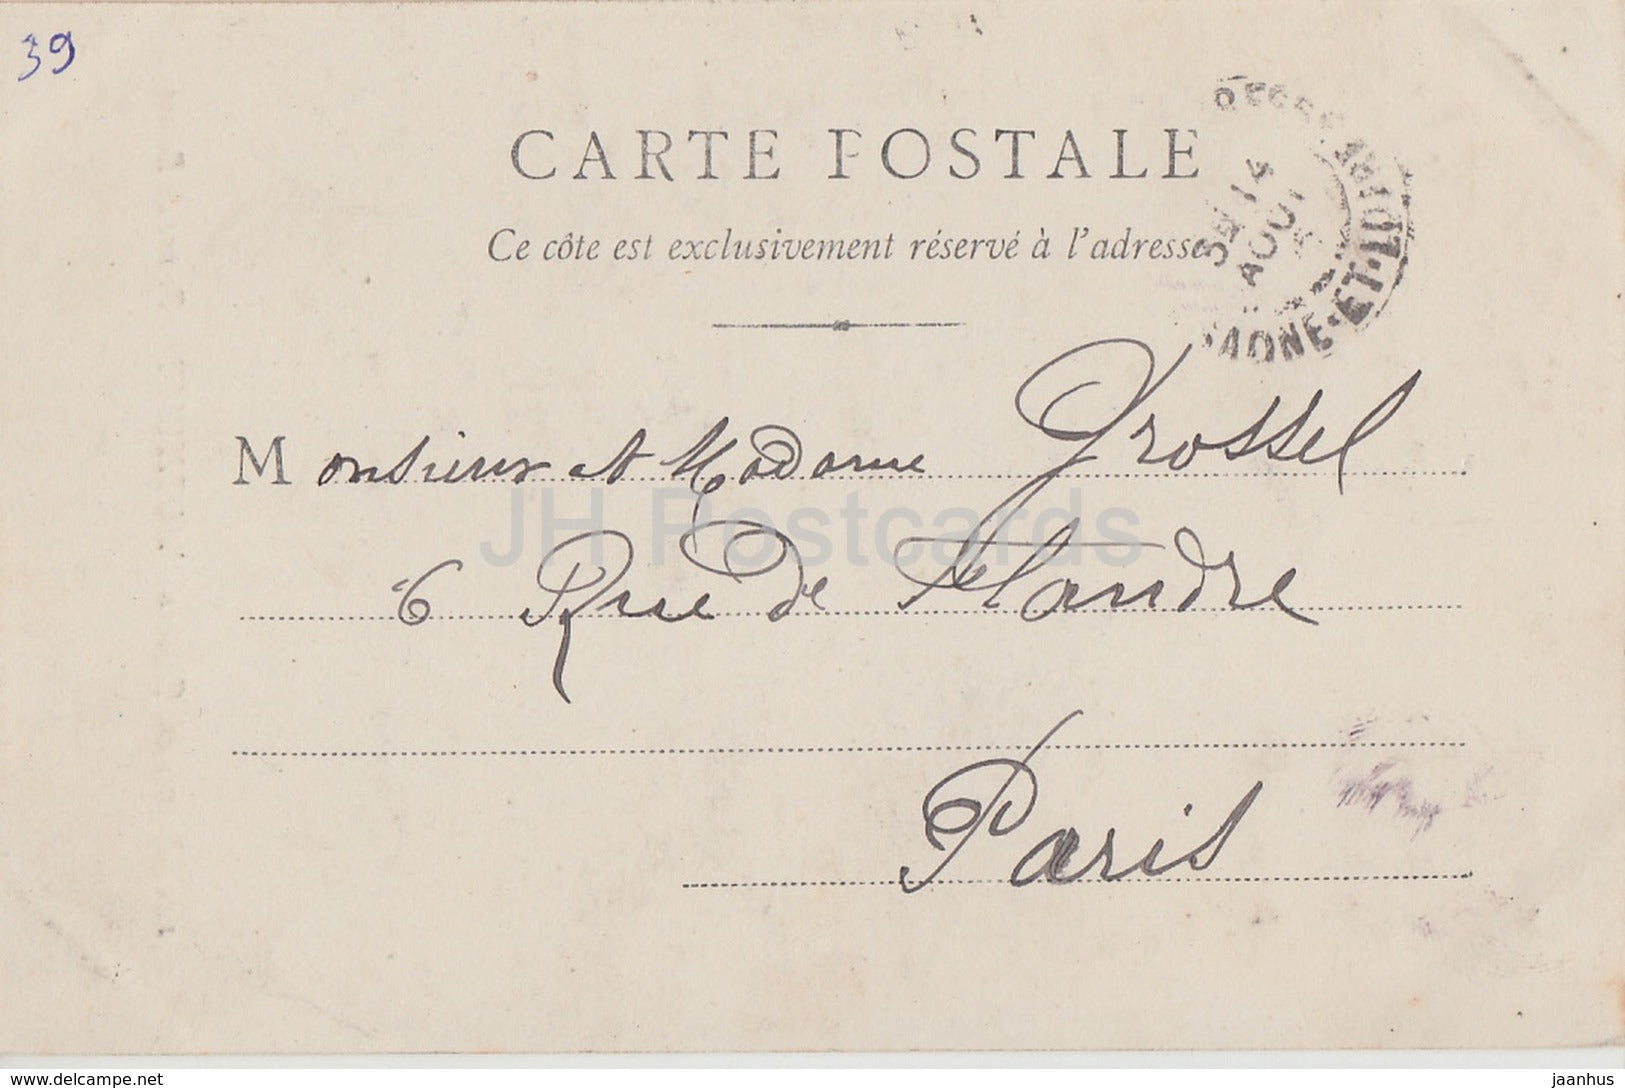 39
CARTE POSTALE
Ce côte est exclusivement réservé à l'adresse
14
AOUT
SAONE-ET-LOIRE
Monsieur et Madame Grossel
6 Rue de Flandre
Paris
JH Postcards
www.delcampe.net
jaanhus